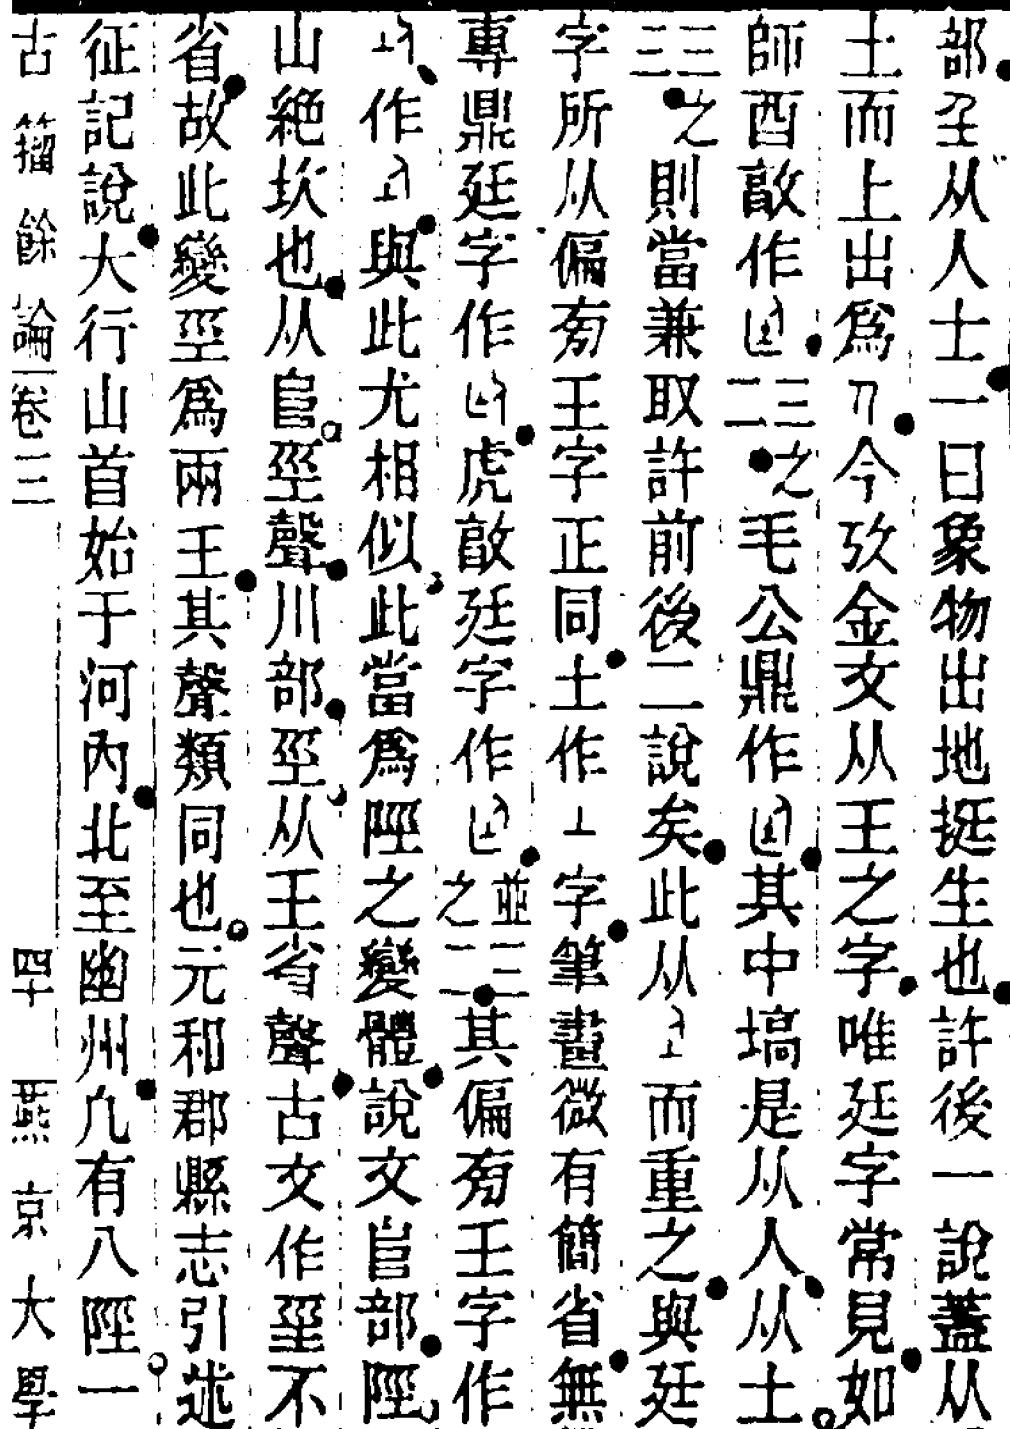 部𡈼从人士一曰象物出地挺生也許後一說蓋从
土而上出爲今攷金文从王之字唯廷字常見如
師酉敦作二三之毛公鼎作其中塙是从人从土
三三之則當兼取許前後二說矣此从而重之與廷
字所从偏㫄王字正同土作字筆畫微有簡省無
專鼎廷字作虎敦廷字作並二三之其偏㫄王字作
作與此尤相似此當爲陘之變體說文𨸏部陘
山絕坎也从𨸏巠聲川部巠从王省聲古文作不
省故此變巠爲兩王其聲類同也元和郡縣志引述
征記說大行山首始于河內北至幽州凡有八陘一
古籀餘論卷三 四十 燕京大學